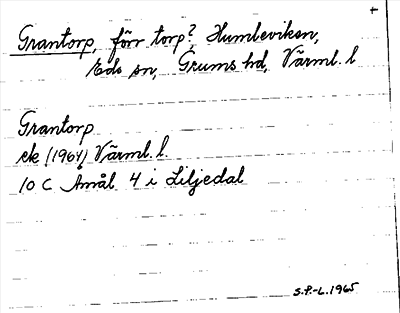 Grantorp, förr torp?, Humleviken,
Eds sn, Grums hd, Värml. l
Grantorp
ek (1964) Värml. l.
10 C Åmål 4 i Liljedal
S.P.-L. 1965